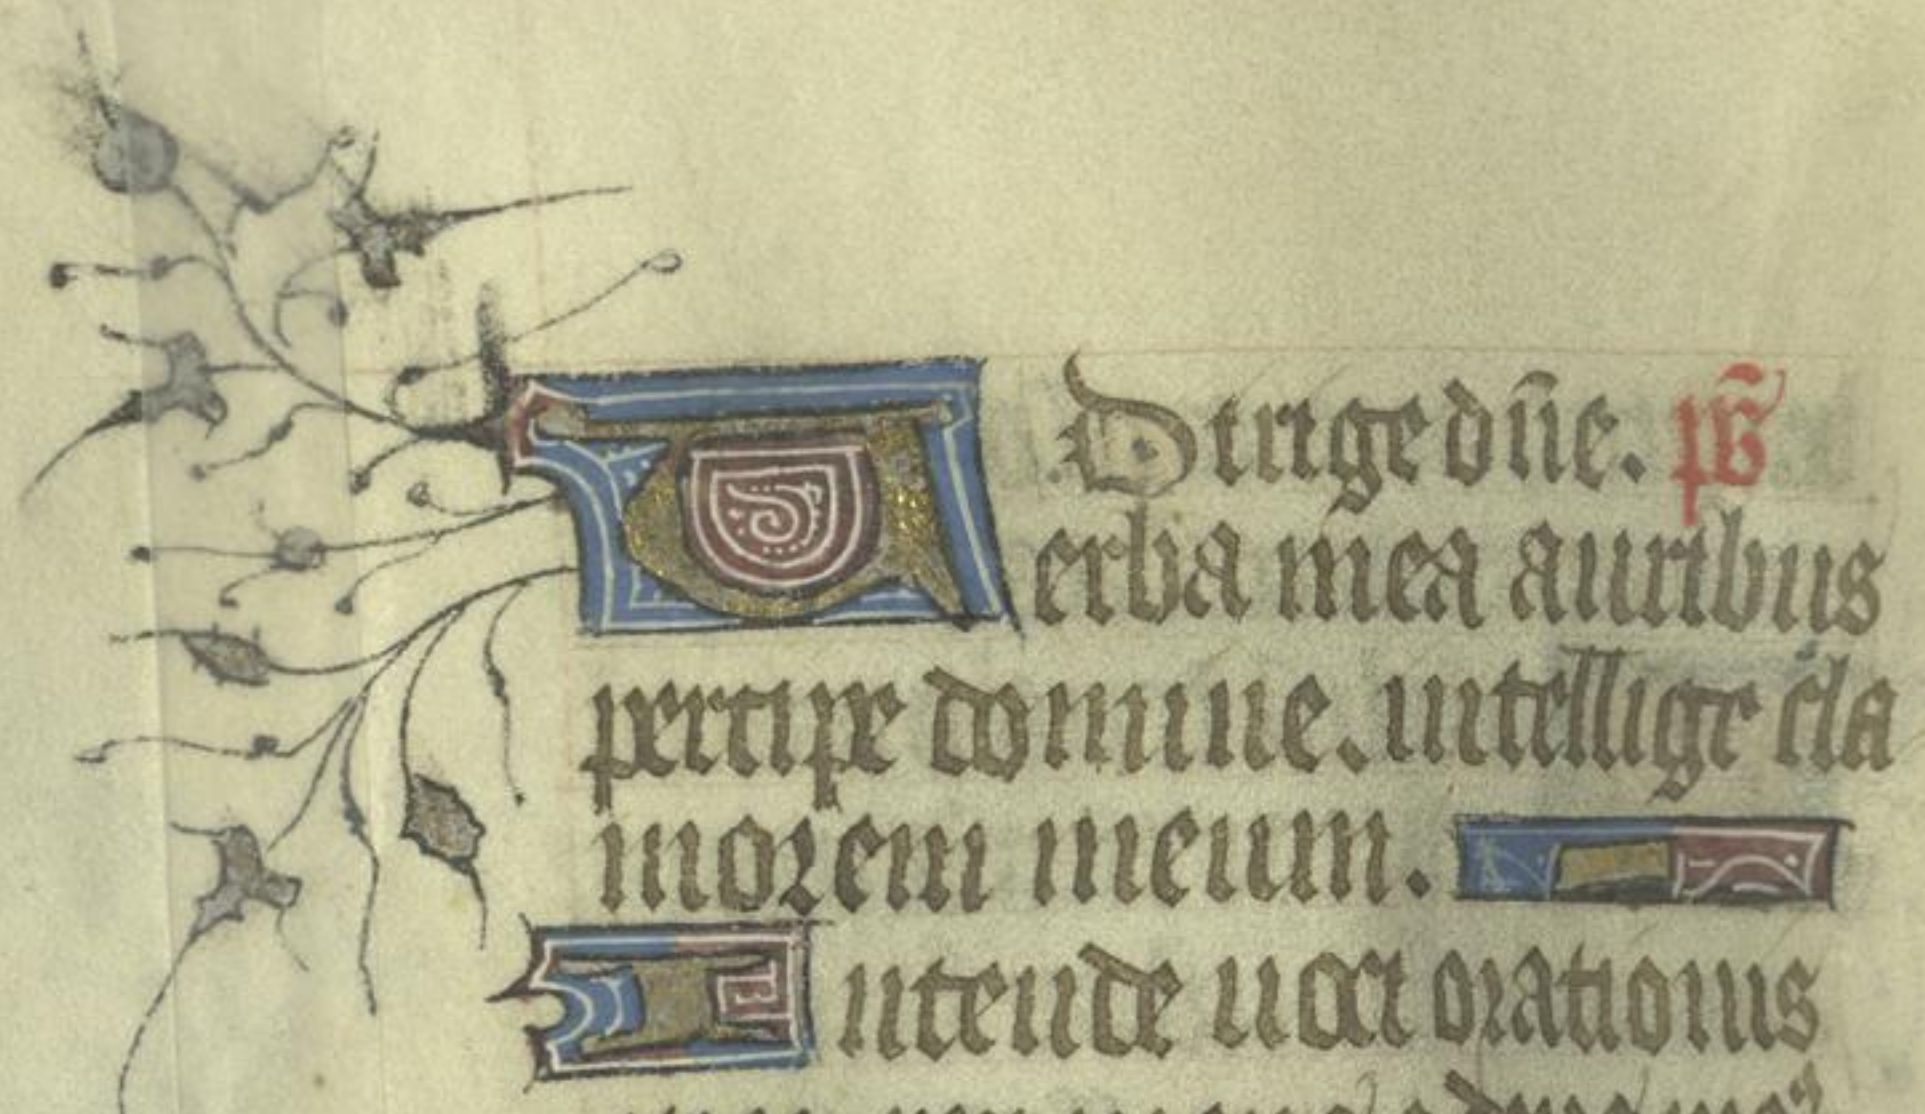 Dirige dñe. p̃s
Verba mea auribus
percipe domine. intellige cla
morem meum.
Intende uoci orationis